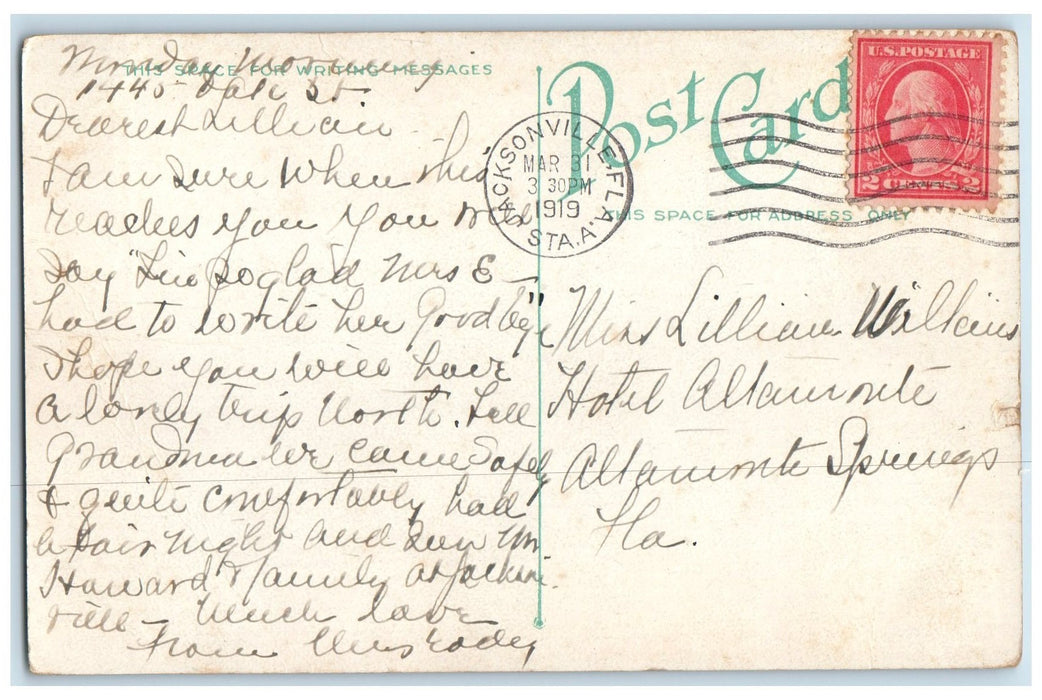 Monday Morning
THIS SPACE FOR WRITING MESSAGES
1445 Dale St
Dearest Lillian
I am sure when this
reaches you you will
say "I'm so glad Mrs E—
had to write her Goodbye"
I hope you will have
a lovely trip North. Tell
Grandma we came safely
& quite comfortably had
a fair night and saw Mr
Howard & family at Jackson
ville — Much love
from
Post Card
THIS SPACE FOR ADDRESS ONLY
U.S. POSTAGE
2 CENTS 2
JACKSONVILLE, FLA.
MAR 31
3 30PM
1919
STA. A.
Miss Lillian Wilkins
Hotel Altamonte
Altamonte Springs
Fla.